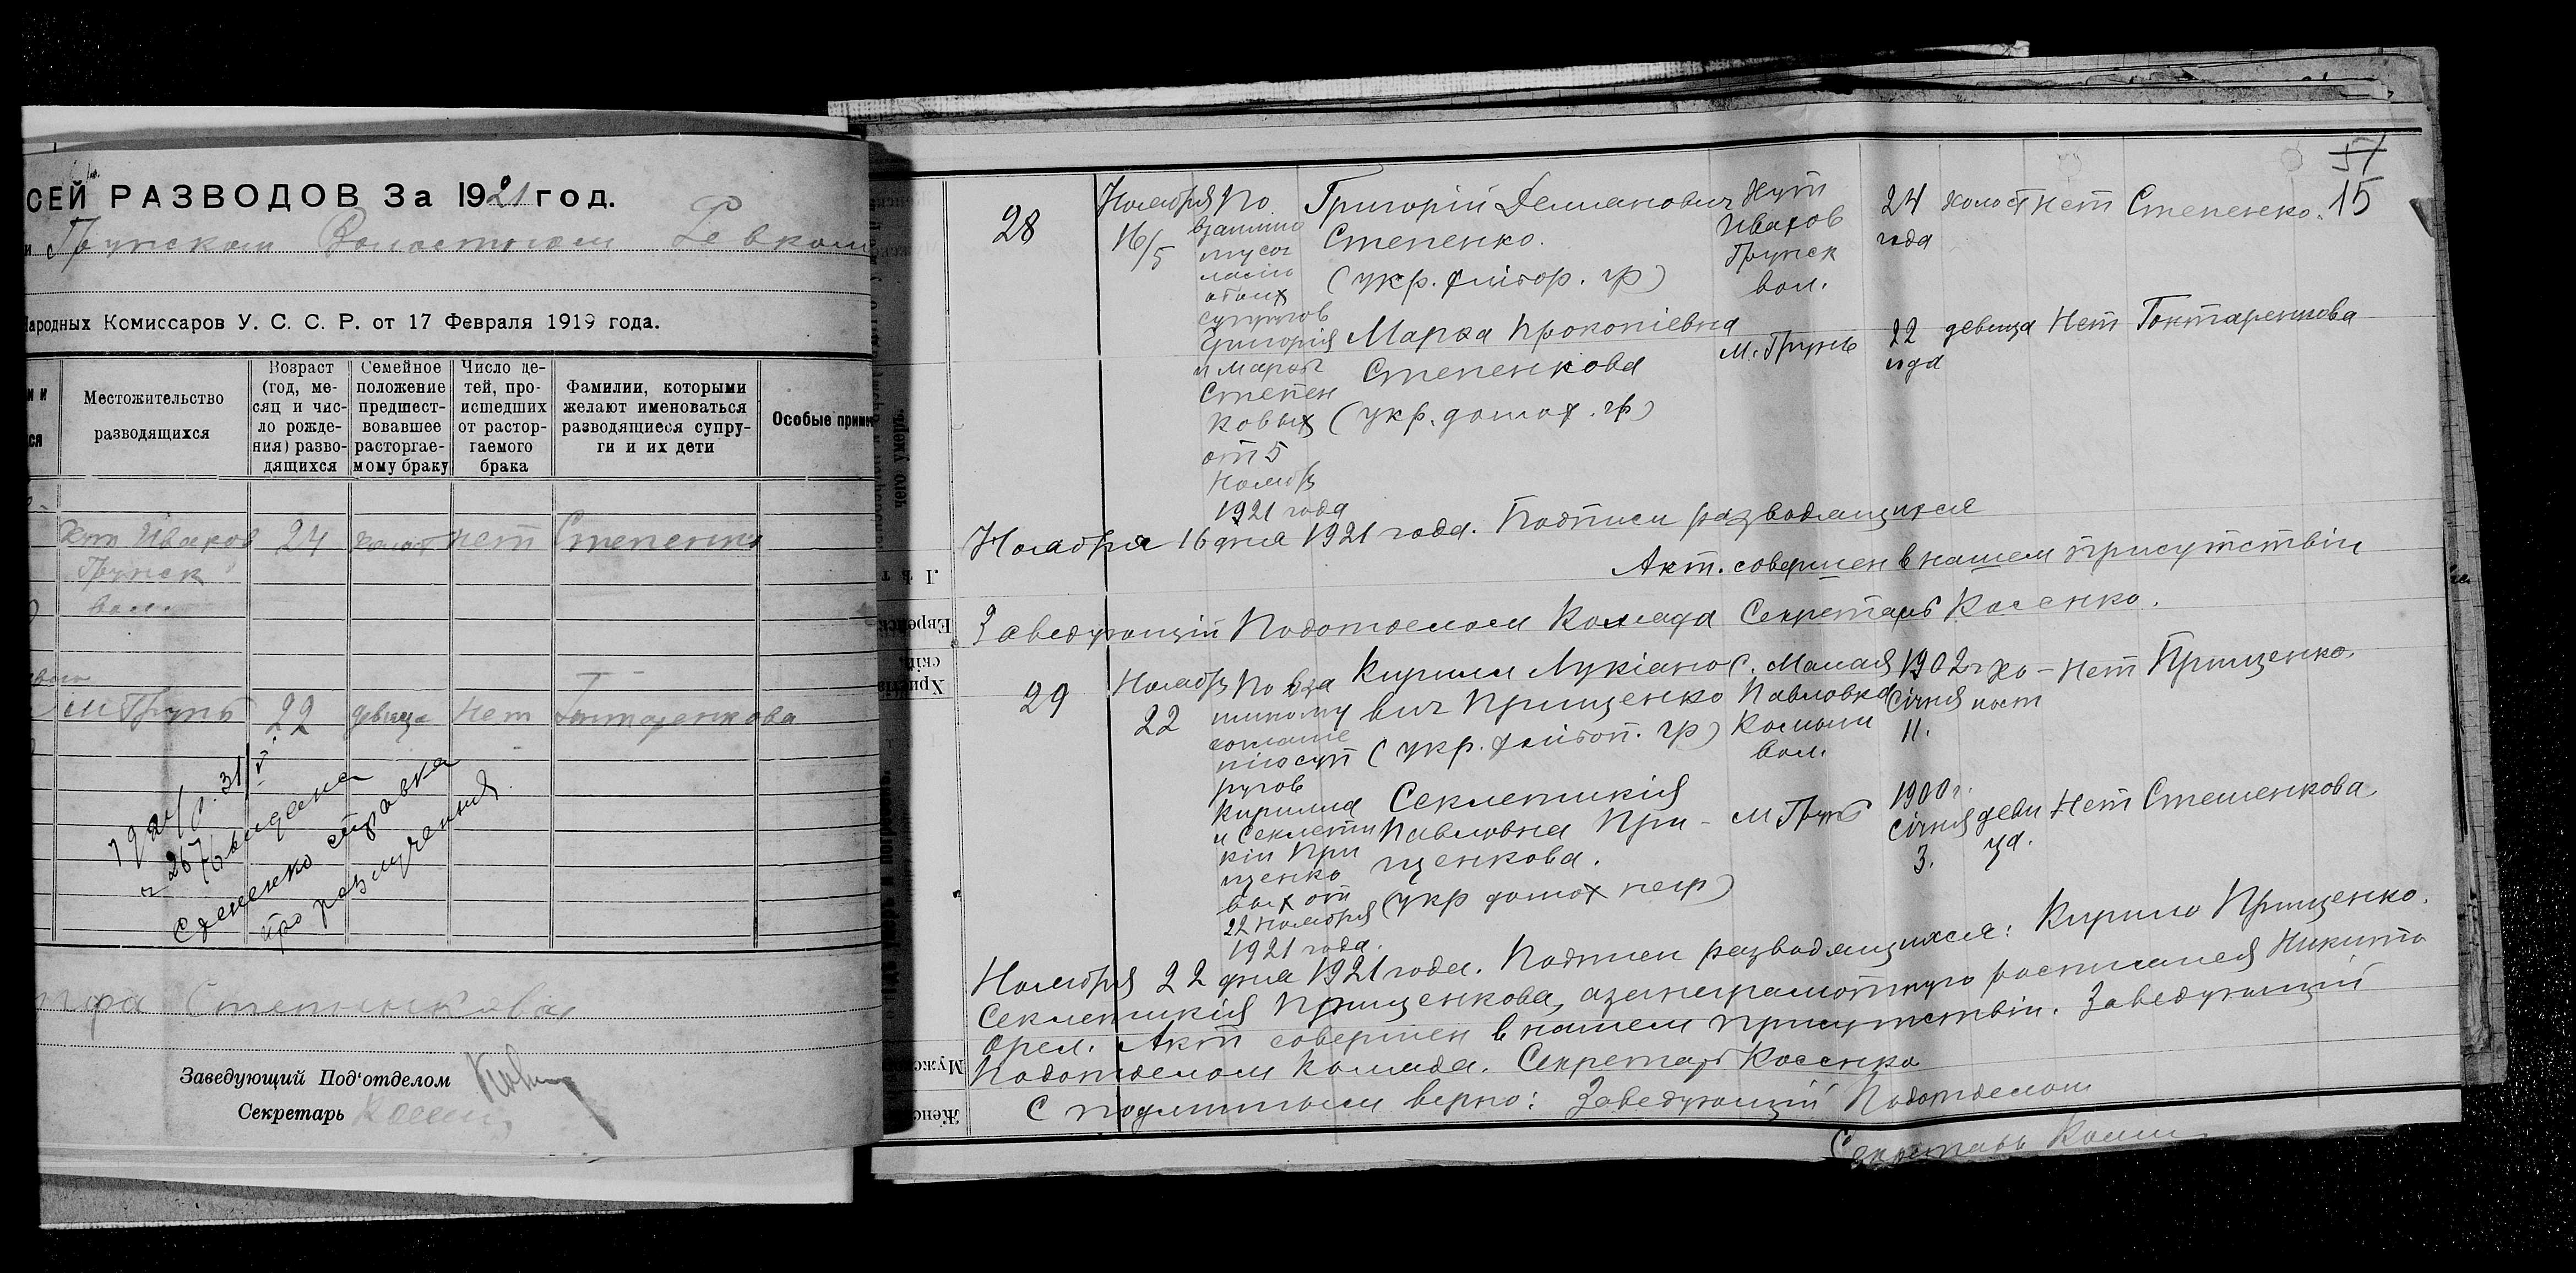 СЕЙ РАЗВОДОВ За 1921 год.
и Грунском Волостном Ревком
Народных Комиссаров У. С. С. Р. от 17 Февраля 1919 года.
Местожительство разводящихся
Возраст (год, ме-
сяц и чис-
ло рожде-
ния) разво-
дящихся
Семейное
положение
предшест-
вовавшее
расторгае-
мому браку
Число де-
тей, про-
исшедших
от растор-
гаемого
брака
Фамилии, которыми
желают именоваться
разводящиеся супру-
ги и их дети
Особые приме
Хут Иваков 24 холост нет Степенко
Грунск
вол.
м Грунь 22 девица нет Гонтаренкова
1924/р. 31/V
ч 267 видана
Степенко справка
про разлучення
Степенкова
Заведующий Под'отделом
Секретарь
57
15
28
Ноября
16/5
По
взаимно
му сог
ласию
обоих
супругов
Григория
и Марфы
Степен
ковых
от 5
Ноябр
1921 года
Григорій Демианович
Степенко.
(укр. хлібор. гр)
Хут
Иваков
Грунск
вол.
24
года
холост нет Степенко.
Марфа Прокопіевна
Степенкова
(укр. домох. гр)
м. Грунь
22
года
девица Нет Гонтаренкова
Ноября 16 дня 1921 года. Подписи разводящихся
Акт. совершен в нашем присутствіи
Заведующій Подотделом Коллада Секретарь Косенко.
29
Ноябр
22
По вза
имному
согласи
ю суп
ругов
Кирилла
и Секлети
кіи При
щенко
вых от
22 Ноября
1921 года.
Кирилл Лукіано
вич Прищенко
(укр. хлібоп. гр)
С. Малая
Павловка
Комыши
вол.
1902 г
Січня
11.
хо-
лост
нет Прищенко.
Секлетикія
Павловна При-
щенкова.
(укр домох негр)
м Грунь
1900 г.
Січня
3.
деви
ца.
Нет Стешенкова.
Ноября 22 дня 1921 года. Подписи разводящихся: Кирило Прищенко.
Секлетикія Прищенкова, а за неграмотную росписался Никита
Орел. Акт совершен в нашем присутствіи. Заведующій
Подотделом Коллада. Секретарь Косенко
С подлинным верно: Заведующій Подотделом
Секретарь